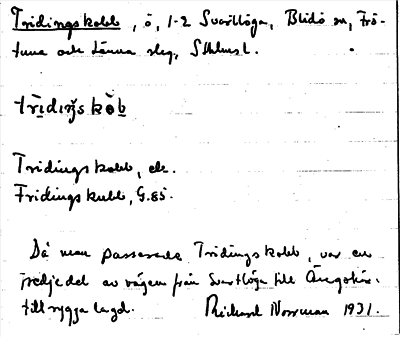 Tridingskobb, ö, 1-2 Svartlöga, Blidö sn, Frö-
tuna och Länna slg, Sthlmsl.
trìdɪŋskòb
Tridingskobb, ek.
Fridingskubb, G.85.
Då man passerade Tridingskobb, var en
tredjedel av vägen från Svartlöga till Ängskär
tillryggalagd. Richard Norrman 1931.